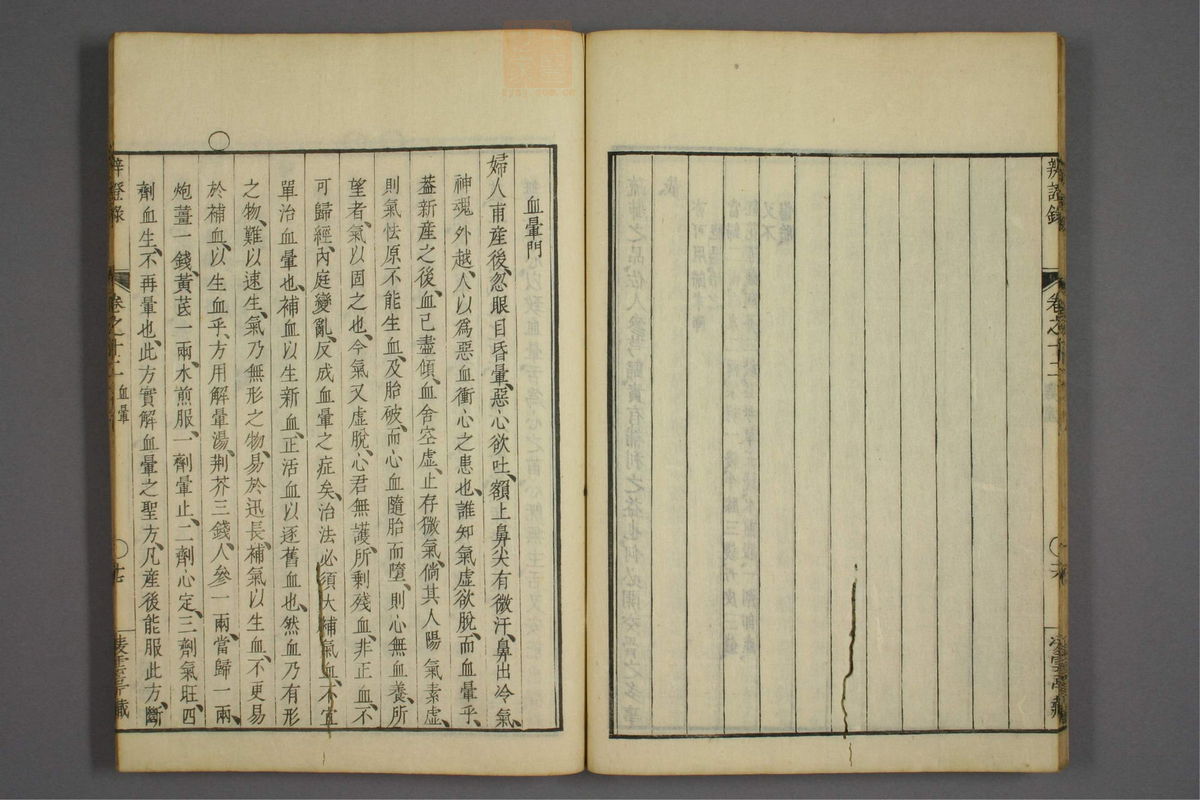 辨證錄
卷之十二
血暈門
婦人甫產後、忽眼目昏暈、惡心欲吐、額上鼻尖有微汗、鼻出冷氣、
神魂外越、人以為惡血衝心之患也、誰知氣虛欲脫、而血暈乎、
蓋新產之後、血已盡傾、血舍空虛、止存微氣、倘其人陽氣素虛、
則氣怯原不能生血、及胎破、而心血隨胎而墮、則心無血養、所
望者、氣以固之也、今氣又虛脫、心君無護、所剩殘血、非正血、不
可歸經、內庭變亂、反成血暈之症矣、治法必須大補氣血、不宜
單治血暈也、補血以生新血、正活血以逐舊血也、然血乃有形
之物、難以速生、氣乃無形之物、易於迅長、補氣以生血、不更易
於補血、以生血乎、方用解暈湯、荆芥三錢、人參一兩、當歸一兩、
炮薑一錢、黃芪一兩、水煎服、一劑暈止、二劑心定、三劑氣旺、四
劑血生、不再暈也、此方實解血暈之聖方、凡產後能服此方、斷
辨證錄
卷之十二
血暈